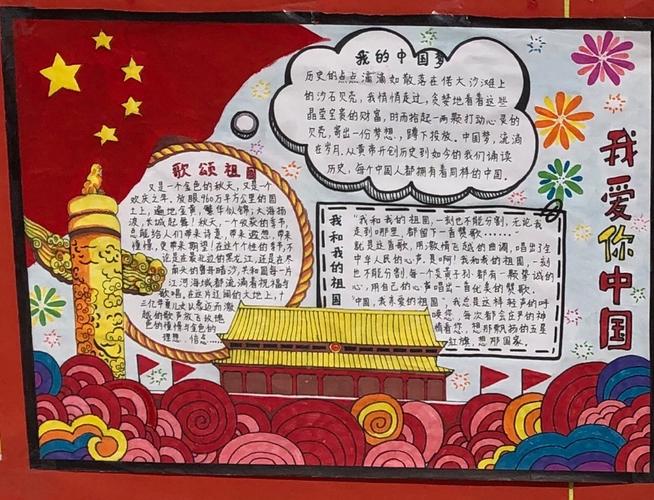 我的中国梦
历史的点点滴滴如散落在偌大沙滩上
的沙石贝壳，我悄悄走过，贪婪地看着这些
晶莹全亵的财富，时而拾起一两颗打动心灵的
贝壳，寄出一份梦想，蹲下投放。中国梦，流淌
在岁月，从黄帝开创历史到如今的我们诵读
历史，每个中国人都拥有着同样的中国。
歌颂祖国
又是一个金色的秋天，又是一个
欢庆之年，放眼960万平方公里的国
土上，遍地金黄，繁华似锦，大海扬
波，长城起舞！秋天，一个收获的季节，
总能给人们带来诗意，带来遐想，带来
憧憬，更带来期望！在这个个性的季节，不
论是在最北边的黑龙江，还是在
南头的曾母暗沙，共和国每一片
江河海域都流淌着祝福与
歌唱，在这片辽阔的大地上，十
三亿华夏儿女从容迈而激
越的歌声放飞玫瑰
色的憧憬与金色的
理想，倍点……
我和我的祖国
“我和我的祖国，一刻也不能分割，无论我
走到哪里，都留下一首赞歌……”
就是这首歌，用激情飞越的曲调，唱出了全
中华人民的心声。是啊！我和我的祖国，一刻
也不能分割，每一个炎黄子孙都有一颗赞诚的
心，用自己的心声唱出一首优美的赞歌。
“中国，我亲爱的祖国”，我总是这样轻声的呼
唤您，每次都会庄严的神
情看您，想那飘扬的五星
红旗，想那国家。
我爱你中国